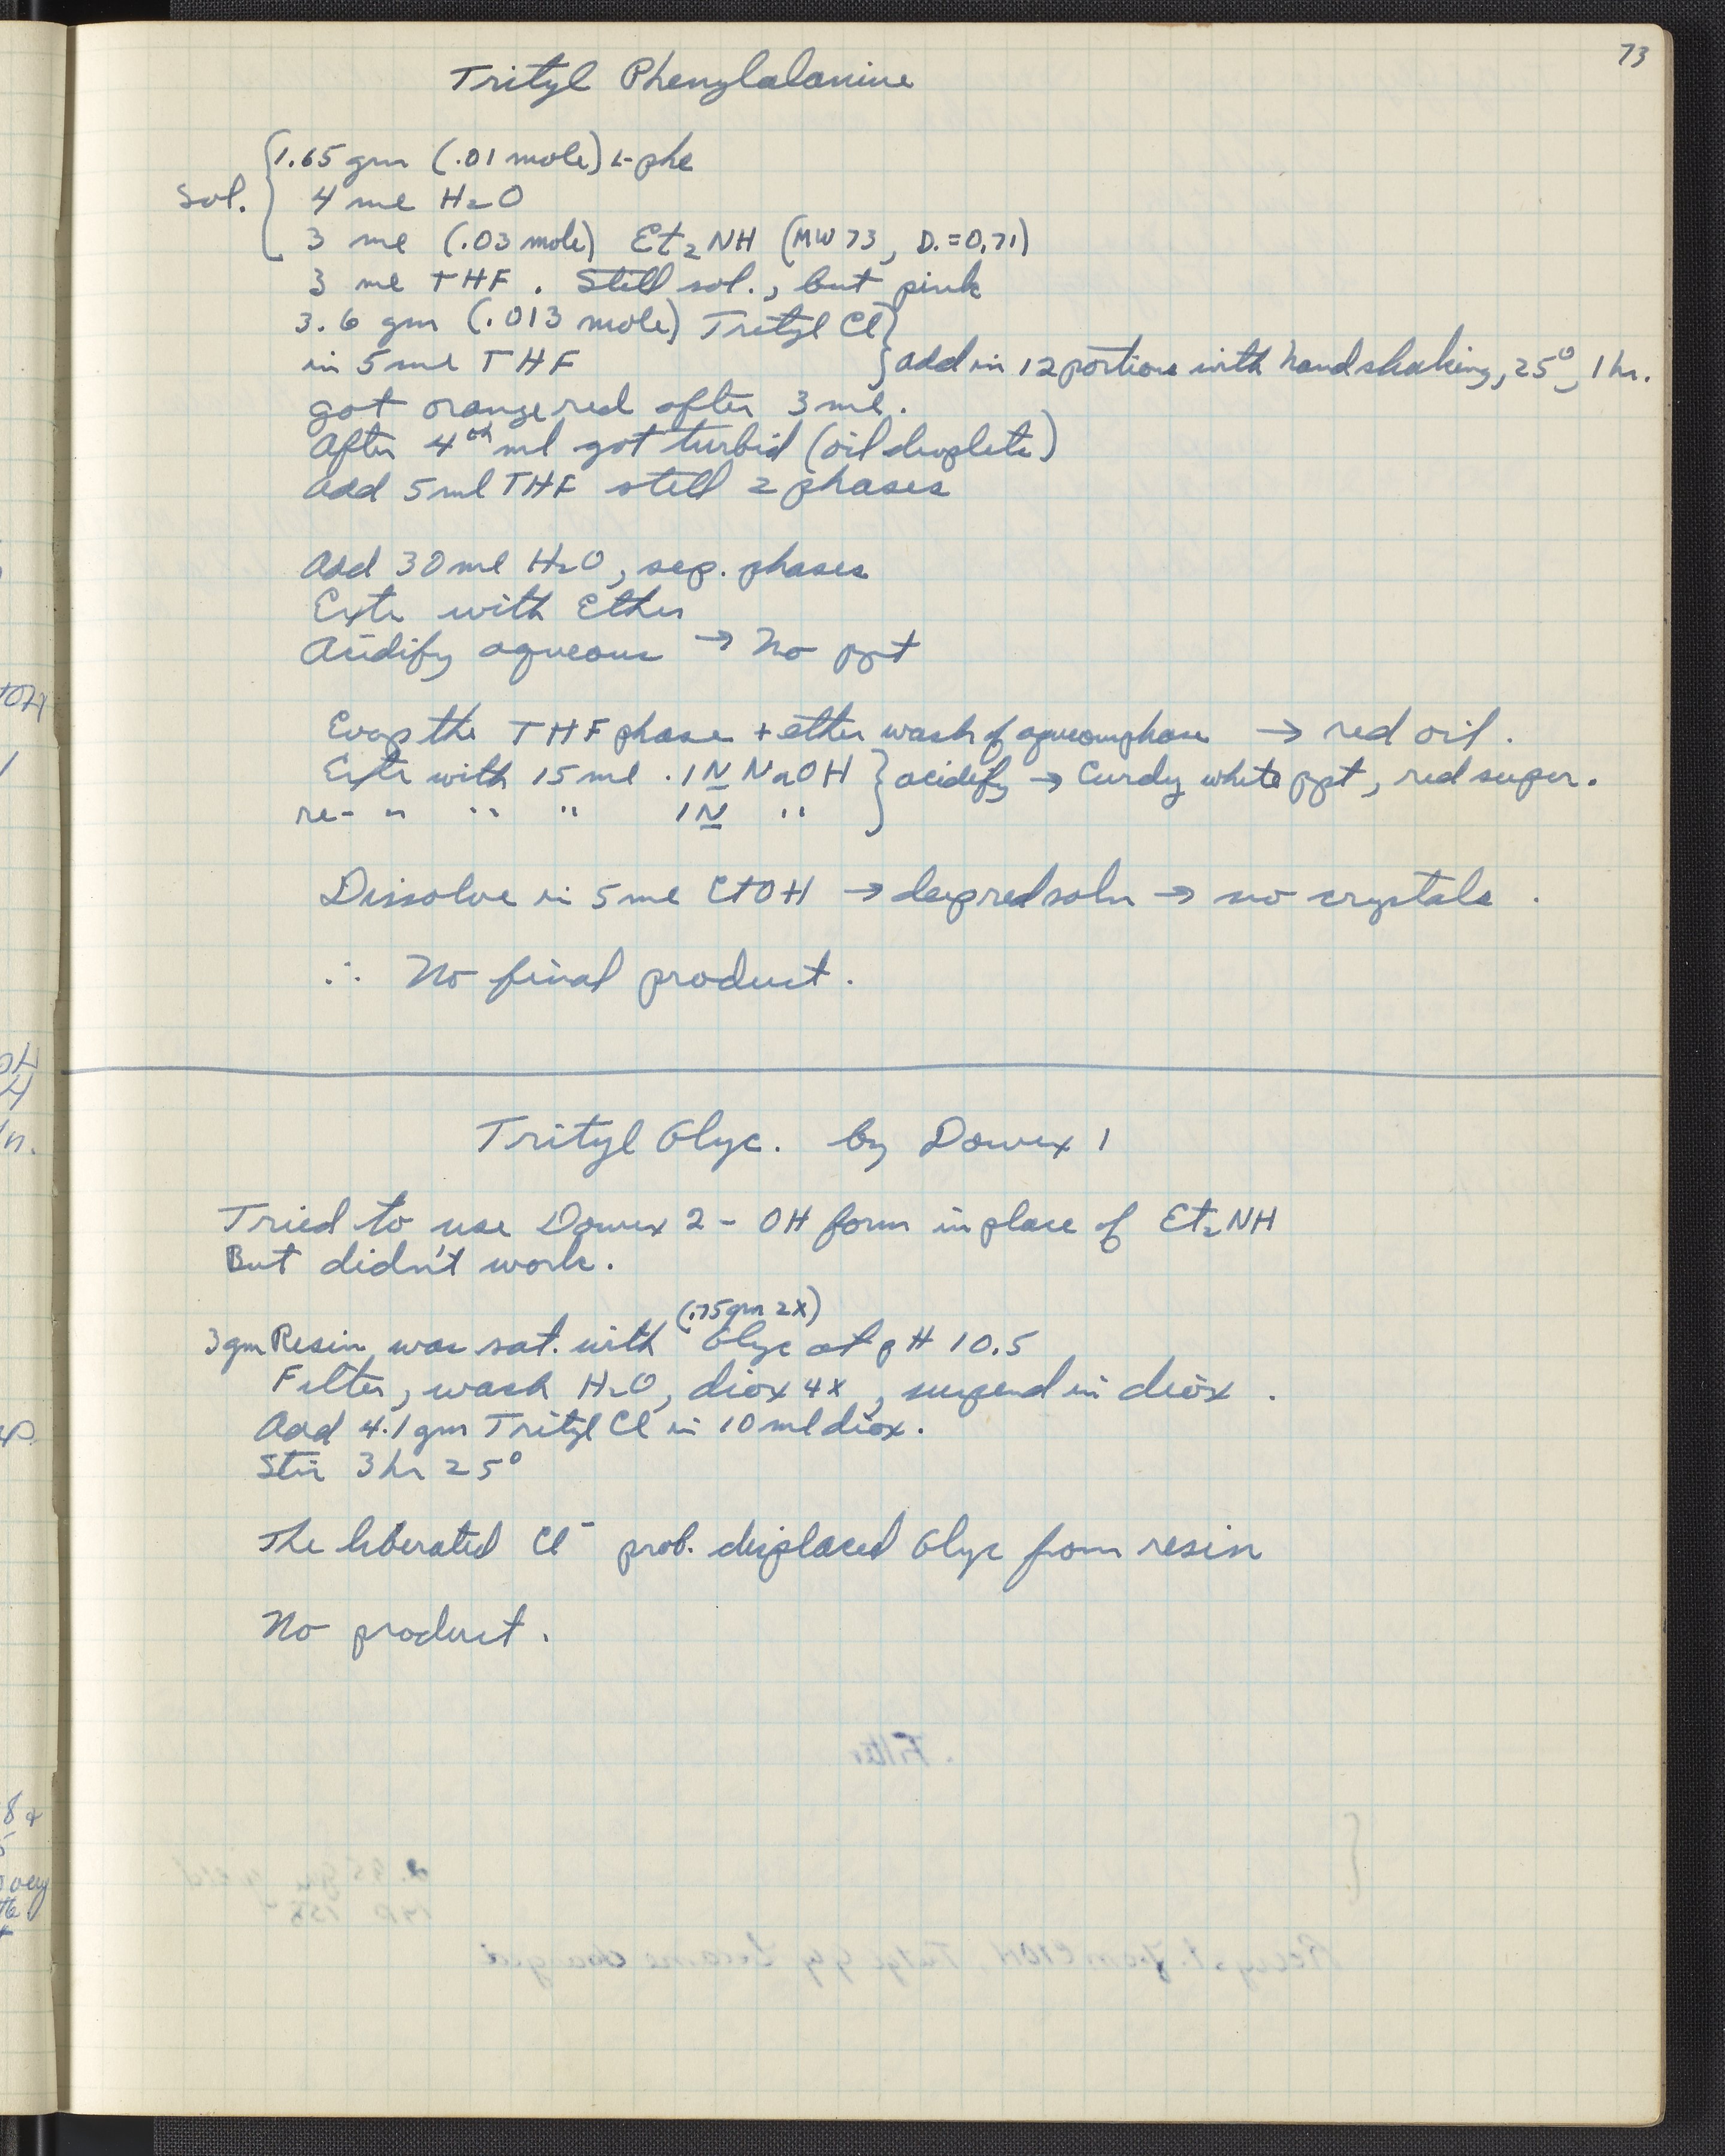 73
Trityl Phenylalanine
1.65 gm (.01 mole) L-phe
Sol. 4 ml H2O
3 ml (.03 mole) Et2NH (MW 73, D.=0.71)
3 ml THF. Still sol., but pink
3.6 gm (.013 mole) Trityl Cl
in 5 ml THF } add in 12 portions with hand shaking, 25°, 1 hr.
got orange red after 3 ml.
After 4th ml got turbid (oil droplets)
Add 5 ml THF still 2 phases
Add 30 ml H2O, sep. phases
Extr with Ether
Acidify aqueous → No ppt
Evap the THF phase + ether wash of aqueous phase → red oil.
Extr with 15 ml .1N NaOH } acidify → Curdy white ppt, red super.
re- " " " 1N "
Dissolve in 5 ml EtOH → deep red soln → no crystals.
∴ No final product.
Trityl Glyc. by Dowex 1
Tried to use Dowex 2 - OH form in place of Et2NH
But didn't work.
(.75 gm 2X)
3 gm Resin was sat. with Glyc at pH 10.5
Filter, wash H2O, diox 4x, suspend in diox.
Add 4.1 gm Trityl Cl in 10 ml diox.
Stir 3 hr 25°
The liberated Cl- prob. displaced Glyc from resin
No product.